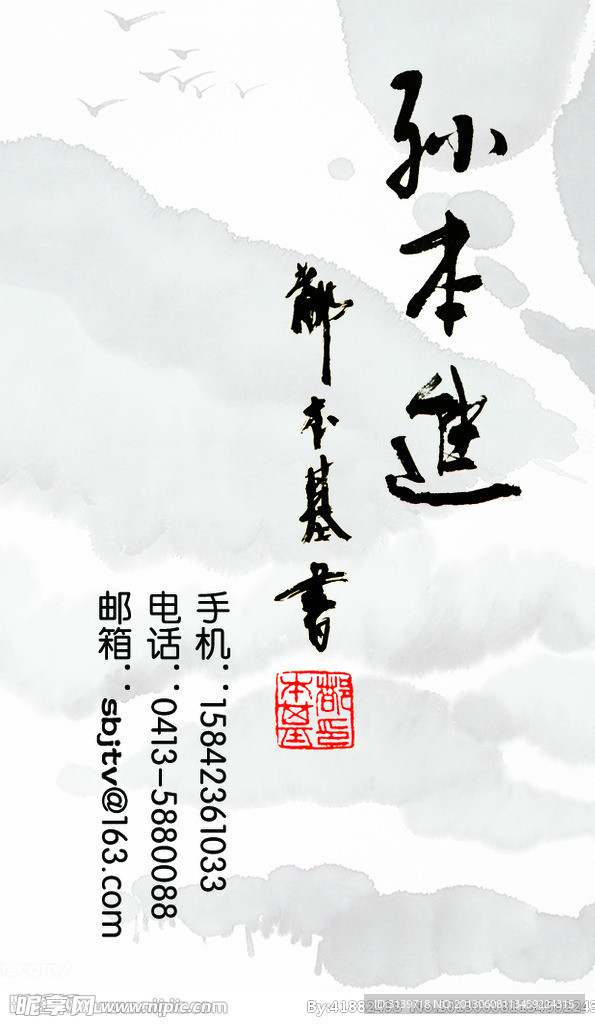 孙本進
都本基書
都本基印
手机：15842361033
电话：0413-5880088
邮箱：sbjtv@163.com
昵享网 www.nipic.com
ID:3139718 NO:20130608113459224315